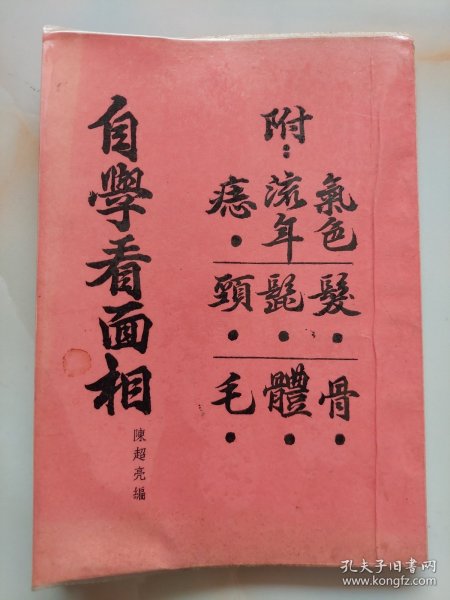 附：
氣色
流年
痣·
髮·
髭·
頸·
骨·
體·
毛·
自學看面相
陳超亮編
孔夫子旧书网
www.kongfz.com